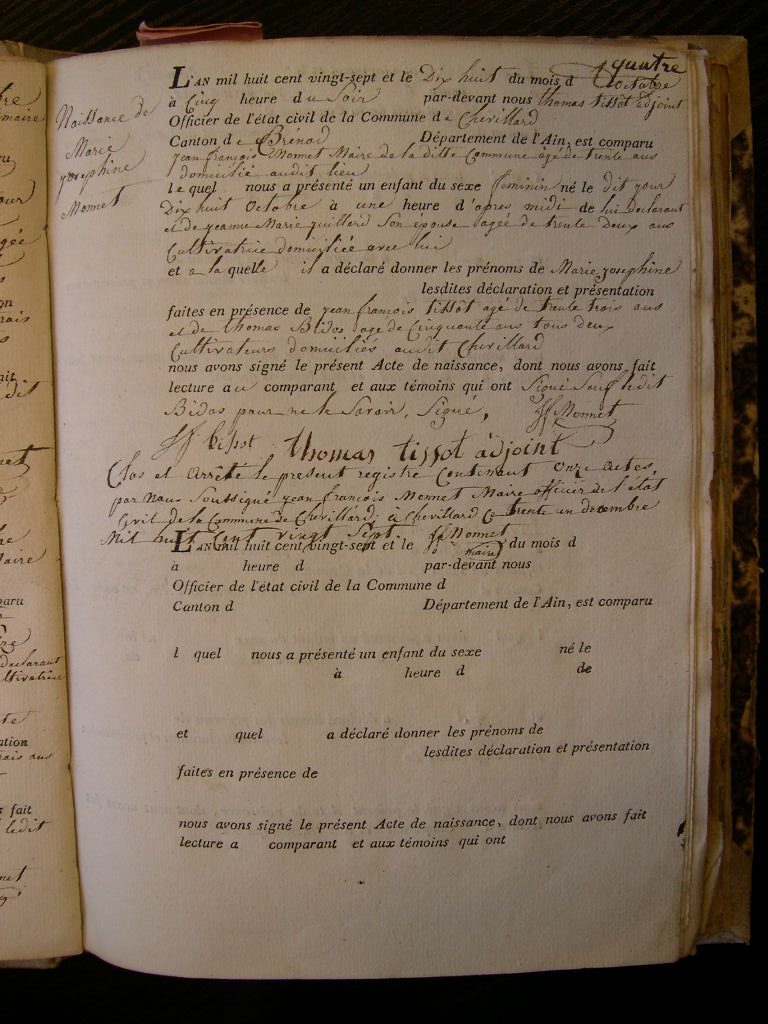 quatre
Naissance de
Marie
josephine
Monnet
L'AN mil huit cent vingt-sept et le Dix huit du mois d'octobre
à Cinq heure du Soir par-devant nous thomas tissot adjoint
Officier de l'état civil de la Commune de Chevillard
Canton de Brénod Département de l'Ain, est comparu
jean françois Monnet Maire de la ditte Commune agé de trente ans
domicilié audit lieu
lequel nous a présenté un enfant du sexe feminin né le dit jour
Dix huit Octobre à une heure d'apres midi de lui Declarant
et de jeanne Marie juillard Son épouse agée de trente deux ans
Cultivatrice domiciliée avec lui
et a la quelle il a déclaré donner les prénoms de Marie josephine
lesdites déclaration et présentation
faites en présence de jean françois tissot agé de trente trois ans
et de thomas Bidos agé de Cinquante ans tous deux
Cultivateurs domiciliés audit Chevillard
nous avons signé le présent Acte de naissance, dont nous avons fait
lecture au comparant et aux témoins qui ont Signé Sauf ledit
Bidos pour ne le Savoir, Signé, jf Monnet
jf tissot thomas tissot adjoint
Clos et arrêté le present registre Contenant onze actes,
par Nous Soussigné jean françois Monnet Maire officier de l'état
Civil de la Commune de Chevillard; à Chevillard Ce trente un decembre
Mil huit Cent vingt Sept. jf Monnet
maire
L'AN mil huit cent vingt-sept et le du mois d
à heure d par-devant nous
Officier de l'état civil de la Commune d
Canton d Département de l'Ain, est comparu
l quel nous a présenté un enfant du sexe né le
à heure d de
et quel a déclaré donner les prénoms de
lesdites déclaration et présentation
faites en présence de
nous avons signé le présent Acte de naissance, dont nous avons fait
lecture a comparant et aux témoins qui ont